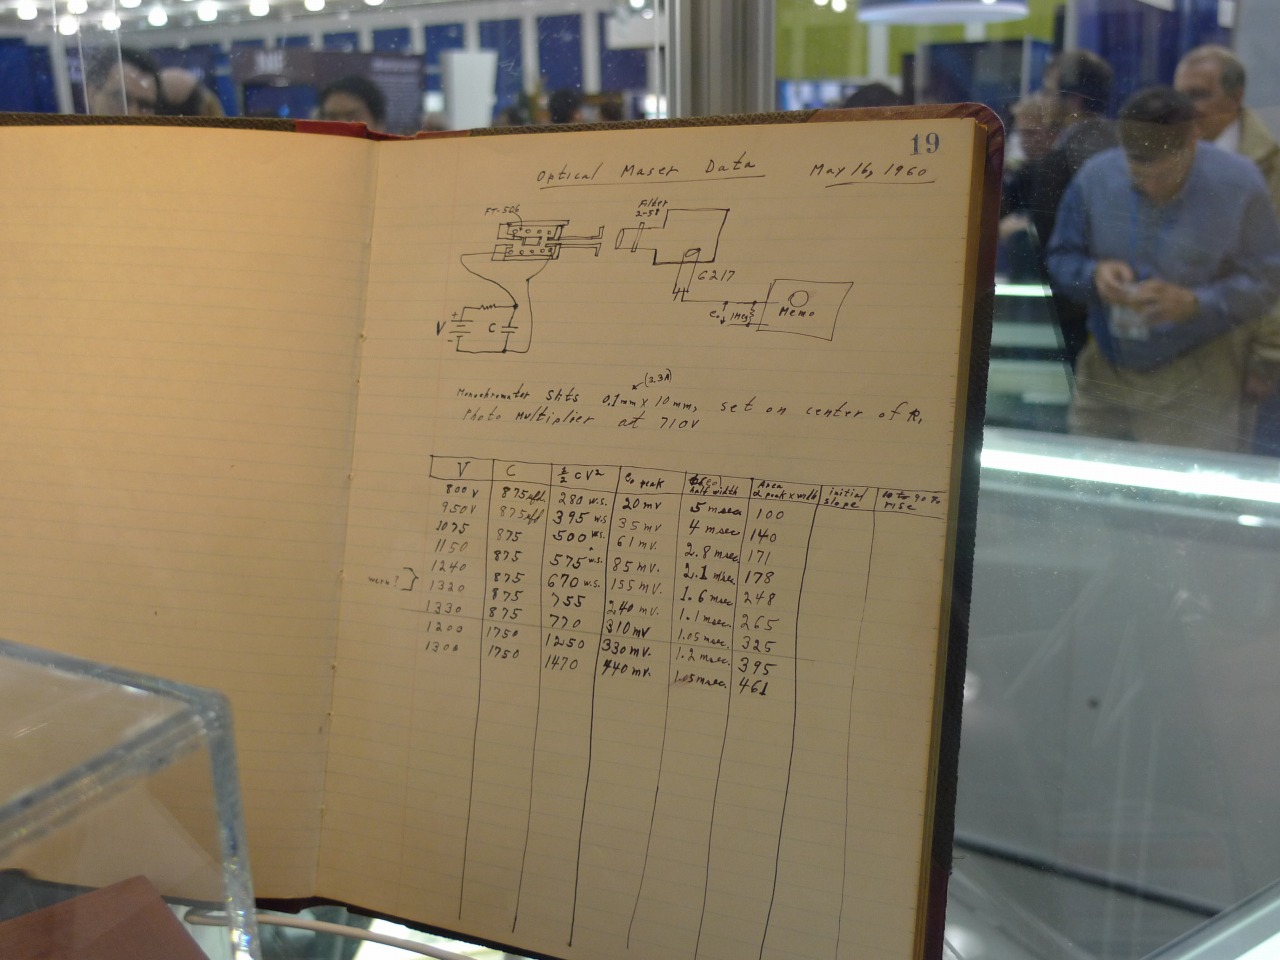 19
Optical Maser Data May 16, 1960
FT-506
Filter
2-58
6217
V C e₀ 1Meg Memo
(2.3Å)
Monochromator Slits 0.1mm x 10mm, set on center of R₁
Photo Multiplier at 710V
V C ½ CV² e₀ peak half width Area α peak x width initial slope 10 to 90 % rise
800 V 875 μfd 280 w.s. 20 mv 5 msec 100
950 V 875 μfd 395 w.s. 35 mv 4 msec 140
1075 875 500 w.s. 61 mv. 2.8 msec 171
1150 875 575 w.s. 85 mv. 2.1 msec 178
1240 875 670 w.s. 155 mv. 1.6 msec 248
1320 875 755 240 mv. 1.1 msec. 265
1330 875 770 310 mv 1.05 msec. 325
1200 1750 1250 330 mv. 1.2 msec. 395
1300 1750 1470 440 mv. 1.05 msec. 461